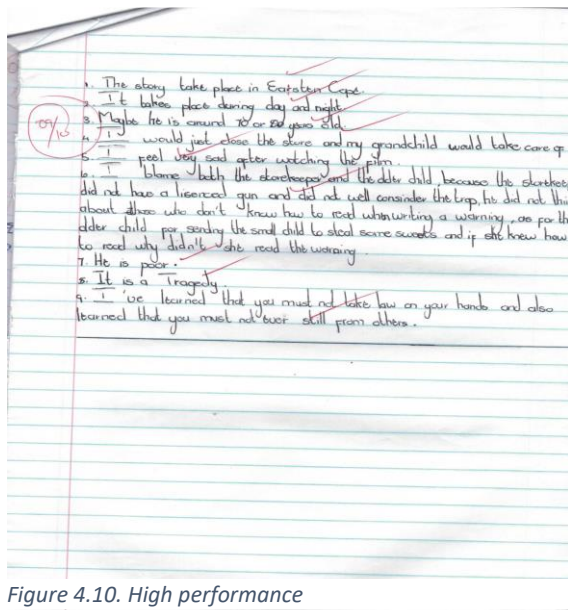 1. The story take place in Eatsten Cape.
2. It takes place during day and night.
3. Maybe he is around 70 or 80 years old.
09/10
4. I would just close the store and my grandchild would take care of
5. I feel very sad after watching the film.
6. I blame both the storekeeper and the older child, because the
did not have a lisenced gun and did not well consinder the trap, he did not
about those who don't know how to read when writing a warning, as for the
older child for sending the small child to steal some sweets and if she knew how
to read why didn't she read the warning.
7. He is poor.
8. It is a Tragedy.
9. I've learned that you must not take law on your hands and also
learned that you must not ever still from others.
Figure 4.10. High performance